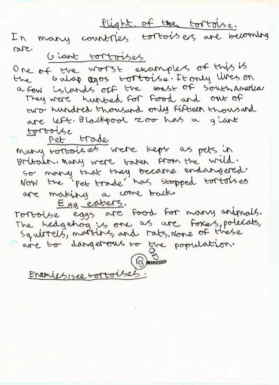 Plight of the tortoise.
In many countries tortoises are becoming
rare.
Giant tortoises
One of the worst examples of this is
the Galapogos tortoise. It only lives on
a few islands off the west of South America
They were hunted for food and out of
two hundred thousand only fifteen thousand
are left. Blackpool zoo has a giant
tortoise
Pet trade
Many tortoises were keps as pets in
Britain. Many were taken from the wild.
so many that they became endangered.
Now the 'pet trade' has stopped tortoises
are making a come back
Egg eaters.
Tortoise eggs are food for many animals.
The hedgehog is one as are foxes, polecats,
Squirrels, martins, and rats. None of these
are to dangerous to the population.
Enamies:see tortoises.